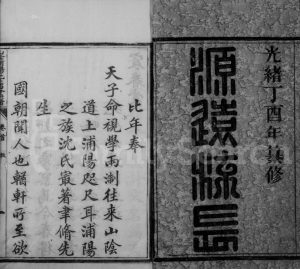 光緒丁酉年真修
源遠流長
比年奉
天子命視學兩浙往來山陰
道上浦陽咫尺耳浦陽
之族沈氏最著聿脩先
生
國朝聞人也輶軒所至欲